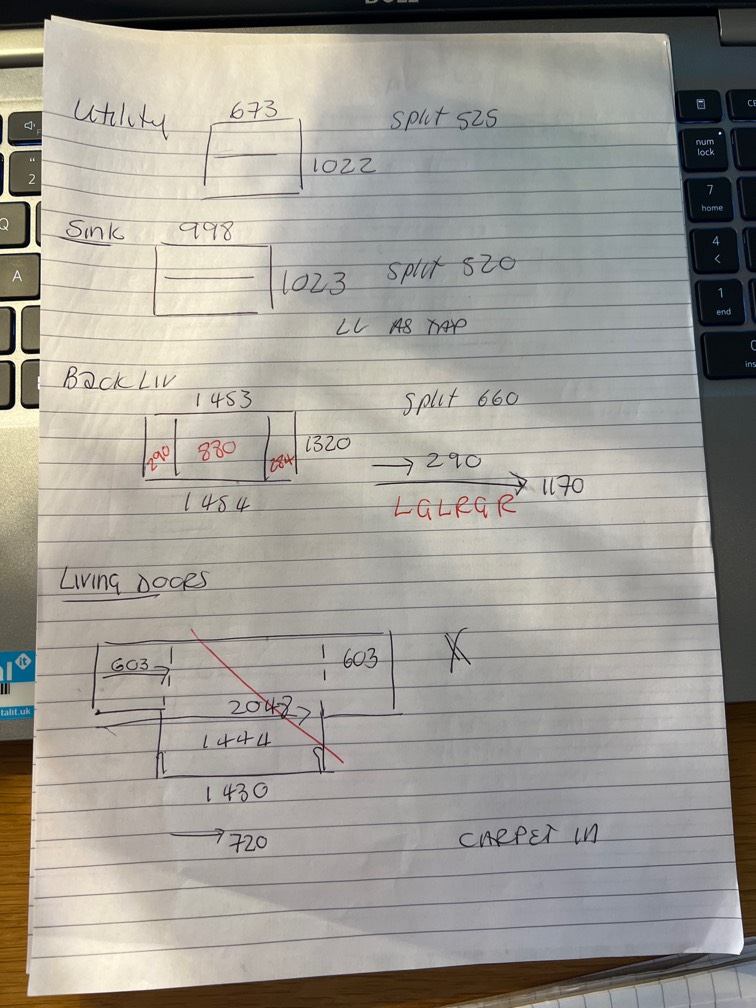 DELL
Utility 673 split 525
1022
Sink 998
1023 split 520
LL AS TAP
Back Liv
1453 split 660
290 880 284 1320
→ 290
→ 1170
1454
LGLRGR
Living Doors
603→ 603 X
2048→
1444
1430
→720
CARPET IN
"
2
Q
A
num
lock
7
home
4
<
1
end
it
talit.uk